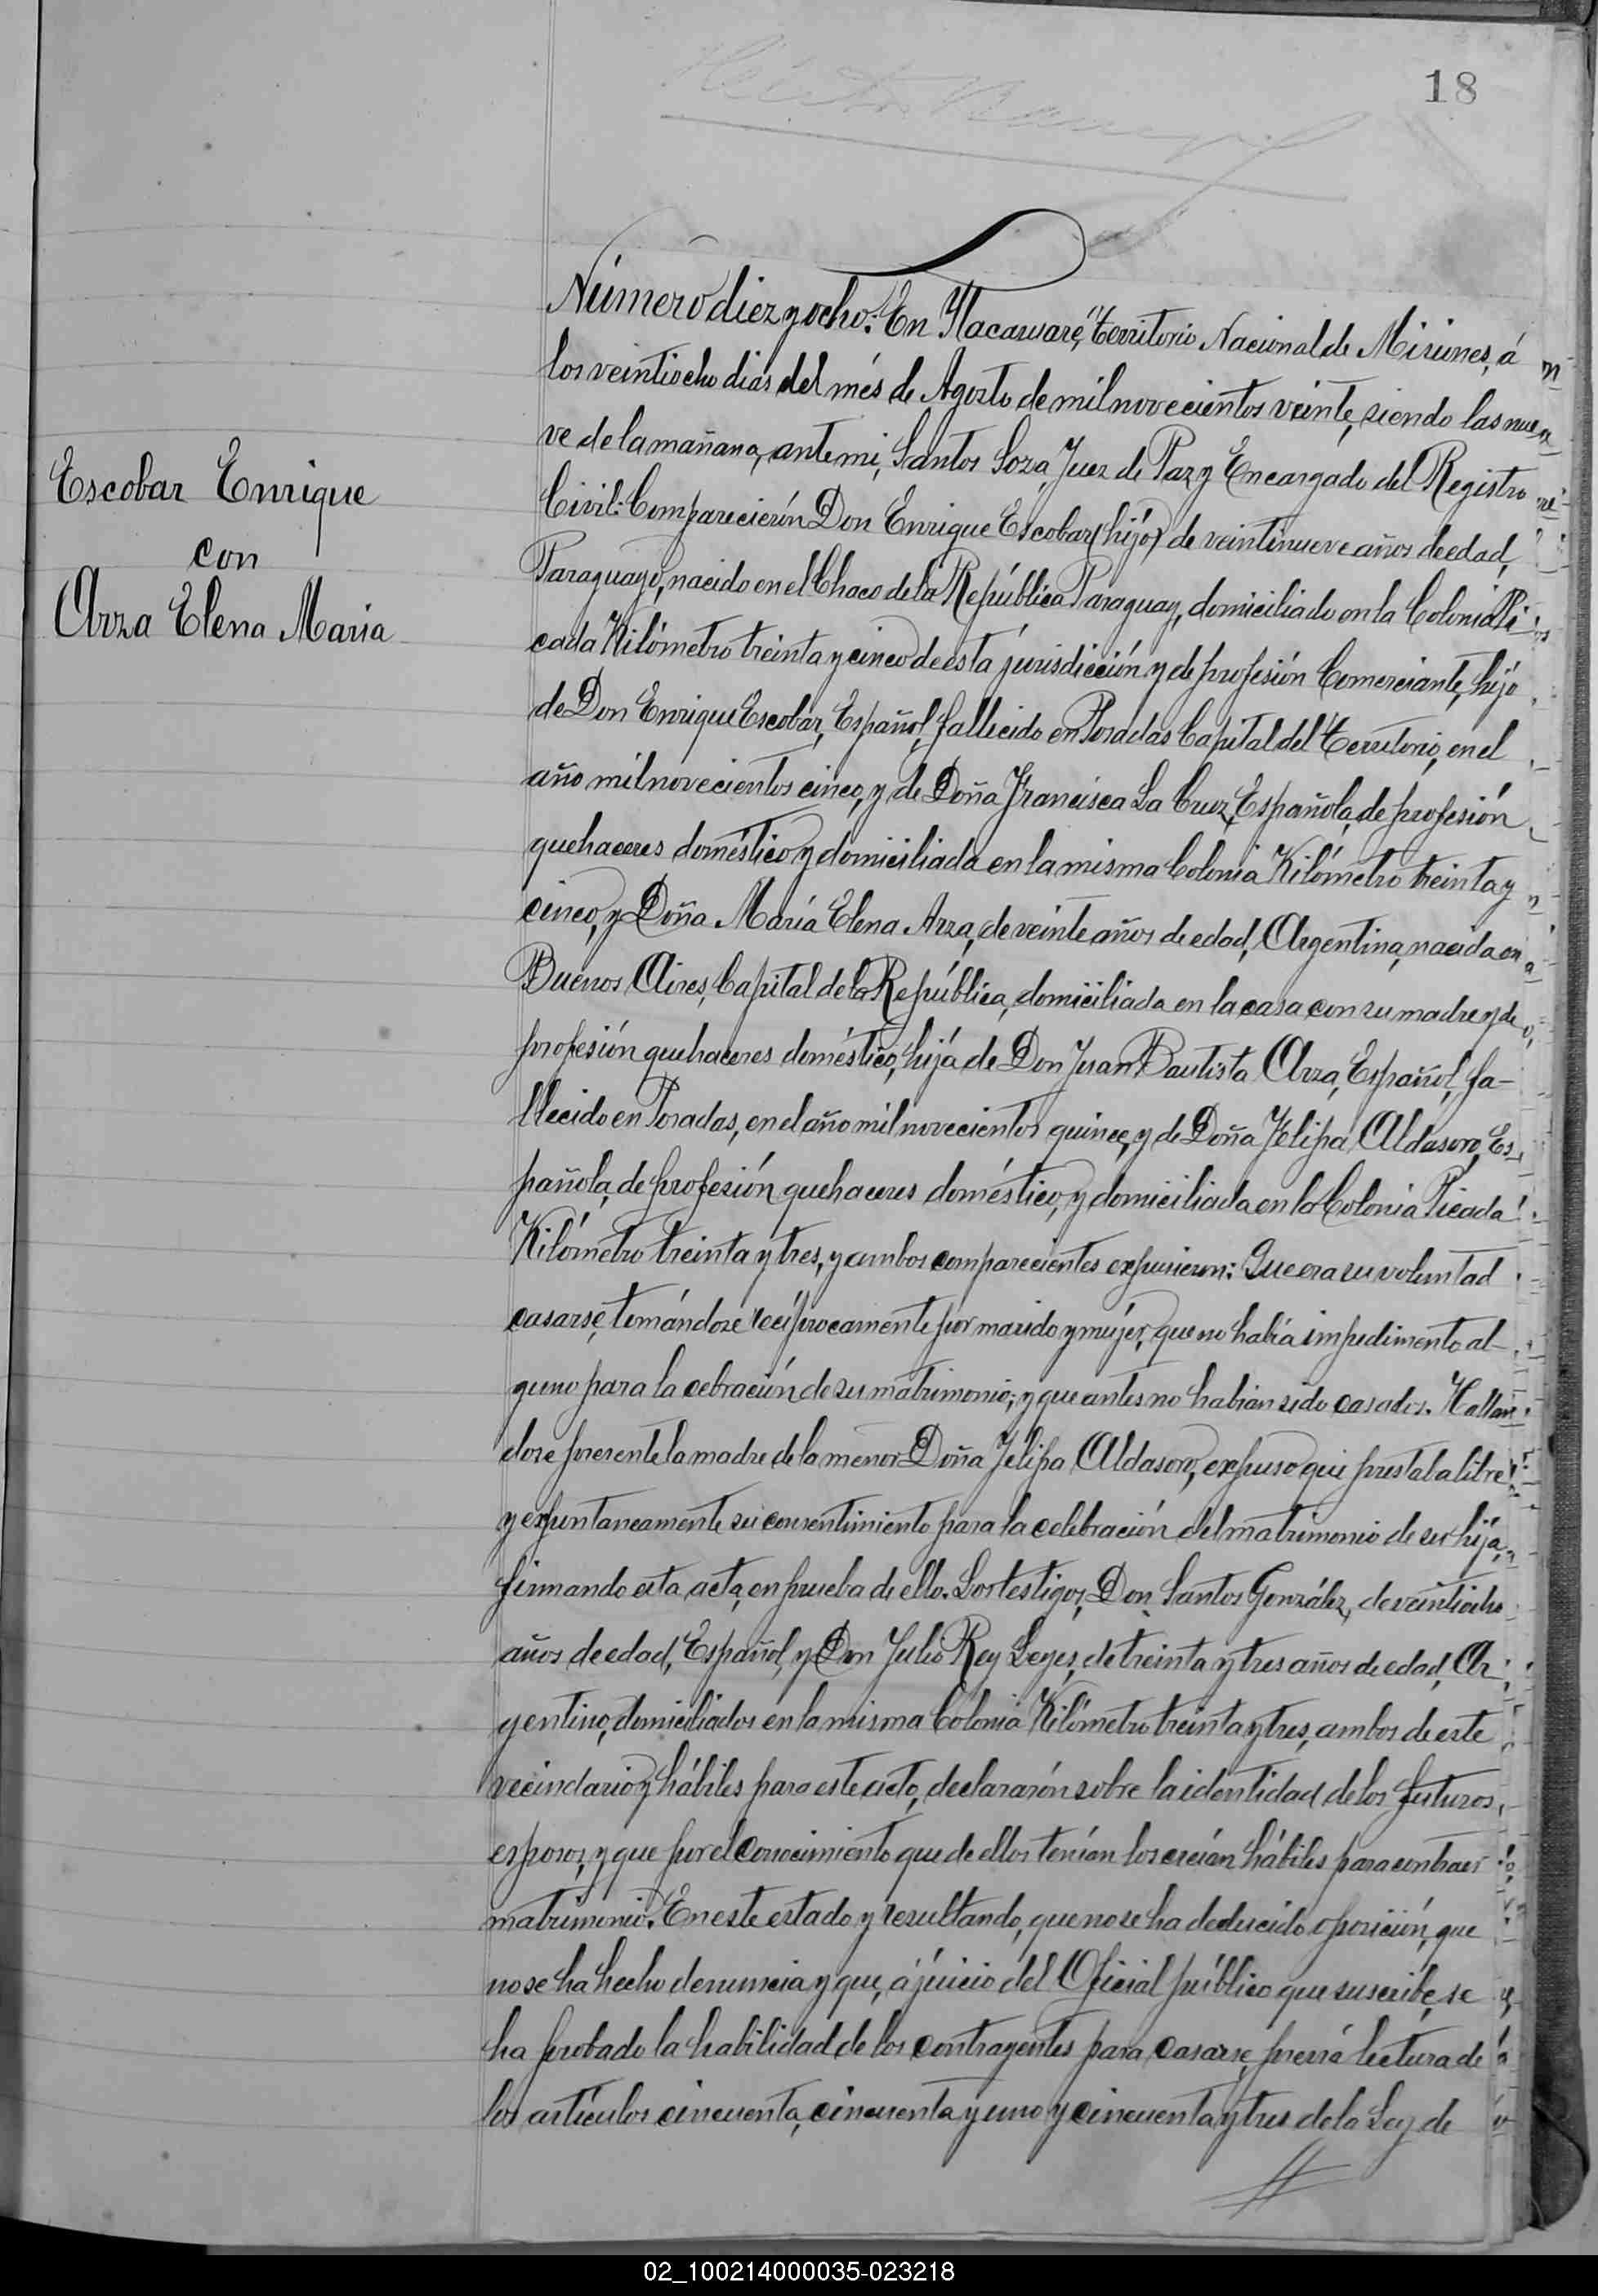 18
Escobar Enrique
con
Arza Elena Maria
Número diez y ocho: En Ytacaruaré, Territorio Nacional de Misiones, á
los veintiocho dias del més de Agosto de mil novecientos veinte, siendo las nue
ve de la mañana, ante mi, Santos Soza, Juez de Paz y Encargado del Registro
Civil: Comparecierón Don Enrique Escobar (hijo) de veintinueve años de edad,
Paraguayo, nacido en el Chaco de la República Paraguay, domiciliado en la Colonia Pi
cada Kilómetro treinta y cinco de esta jurisdicción y de profesión Comerciante, hijo
de Don Enrique Escobar, Español, fallicido en Posadas Capital del Territorio, en el
año mil novecientos cinco, y de Doña Francisca La Cruz, Española, de profesión
quehaceres doméstico y domiciliada en la misma Colonia Kilómetro treinta y
cinco, y Doña María Elena Arza, de veinte años de edad, Argentina, nacida en
Buenos Aires, Capital de la República, domiciliada en la casa con su madre y de
profesión quehaceres doméstico, hijá de Don Juan Bautista Arza, Español, fa-
llecido en Posadas, en el año mil novecientos quince, y de Doña Felipa Aldasoro, Es
pañola, de profesión quehaceres doméstico, y domiciliada en la Colonia Picada
Kilómetro treinta y tres, y ambos comparecientes expusieron: Que era su voluntad
casarse, tomándose recíprocamente por marido y mujér, que no había impedimento al-
guno para la cebración de su matrimonio; y que antes no habian sido casados. Hallan
dose presente la madre de la menor Doña Felipa Aldasoro, expuso que prestaba libre
y expuntaneamente su consentimiento para la celebración del matrimonio de su hija,
firmando esta acta, en prueba de ello. Los testigos, Don Santos González, de veintiocho
años de edad, Español, y Don Julio Rey Leyes, de treinta y tres años de edad, Ar
gentino, domiciliados en la misma Colonia Kilómetro treinta y tres, ambos de este
vecindario y hábiles para este acto, declararón sobre la identidad de los futuros
esposos, y que por el conocimiento que de ellos tenían los creían hábiles para contraer
matrimonio. En este estado y resultando, que no se ha deducido oposición, que
no se ha hecho denuncia y que, á juicio del Oficial público que suscribe, se
ha probado la habilidad de los contrayentes para casarse, previa lectura de
los artículos cincuenta, cincuenta y uno y cincuenta y tres de la Ley de
02_100214000035-023218